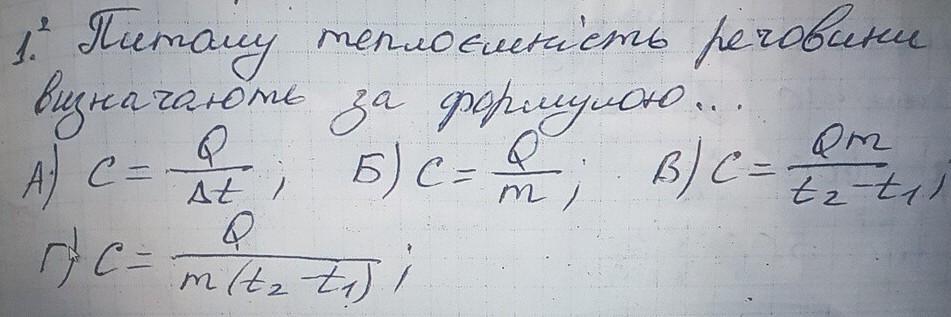 1.² Питому теплоємність речовини
визначають за формулою...
А) C = Q/Δt ; Б) C = Q/m ; В) C = Qm/t₂-t₁ ,
Г) C = Q/m(t₂-t₁) ;